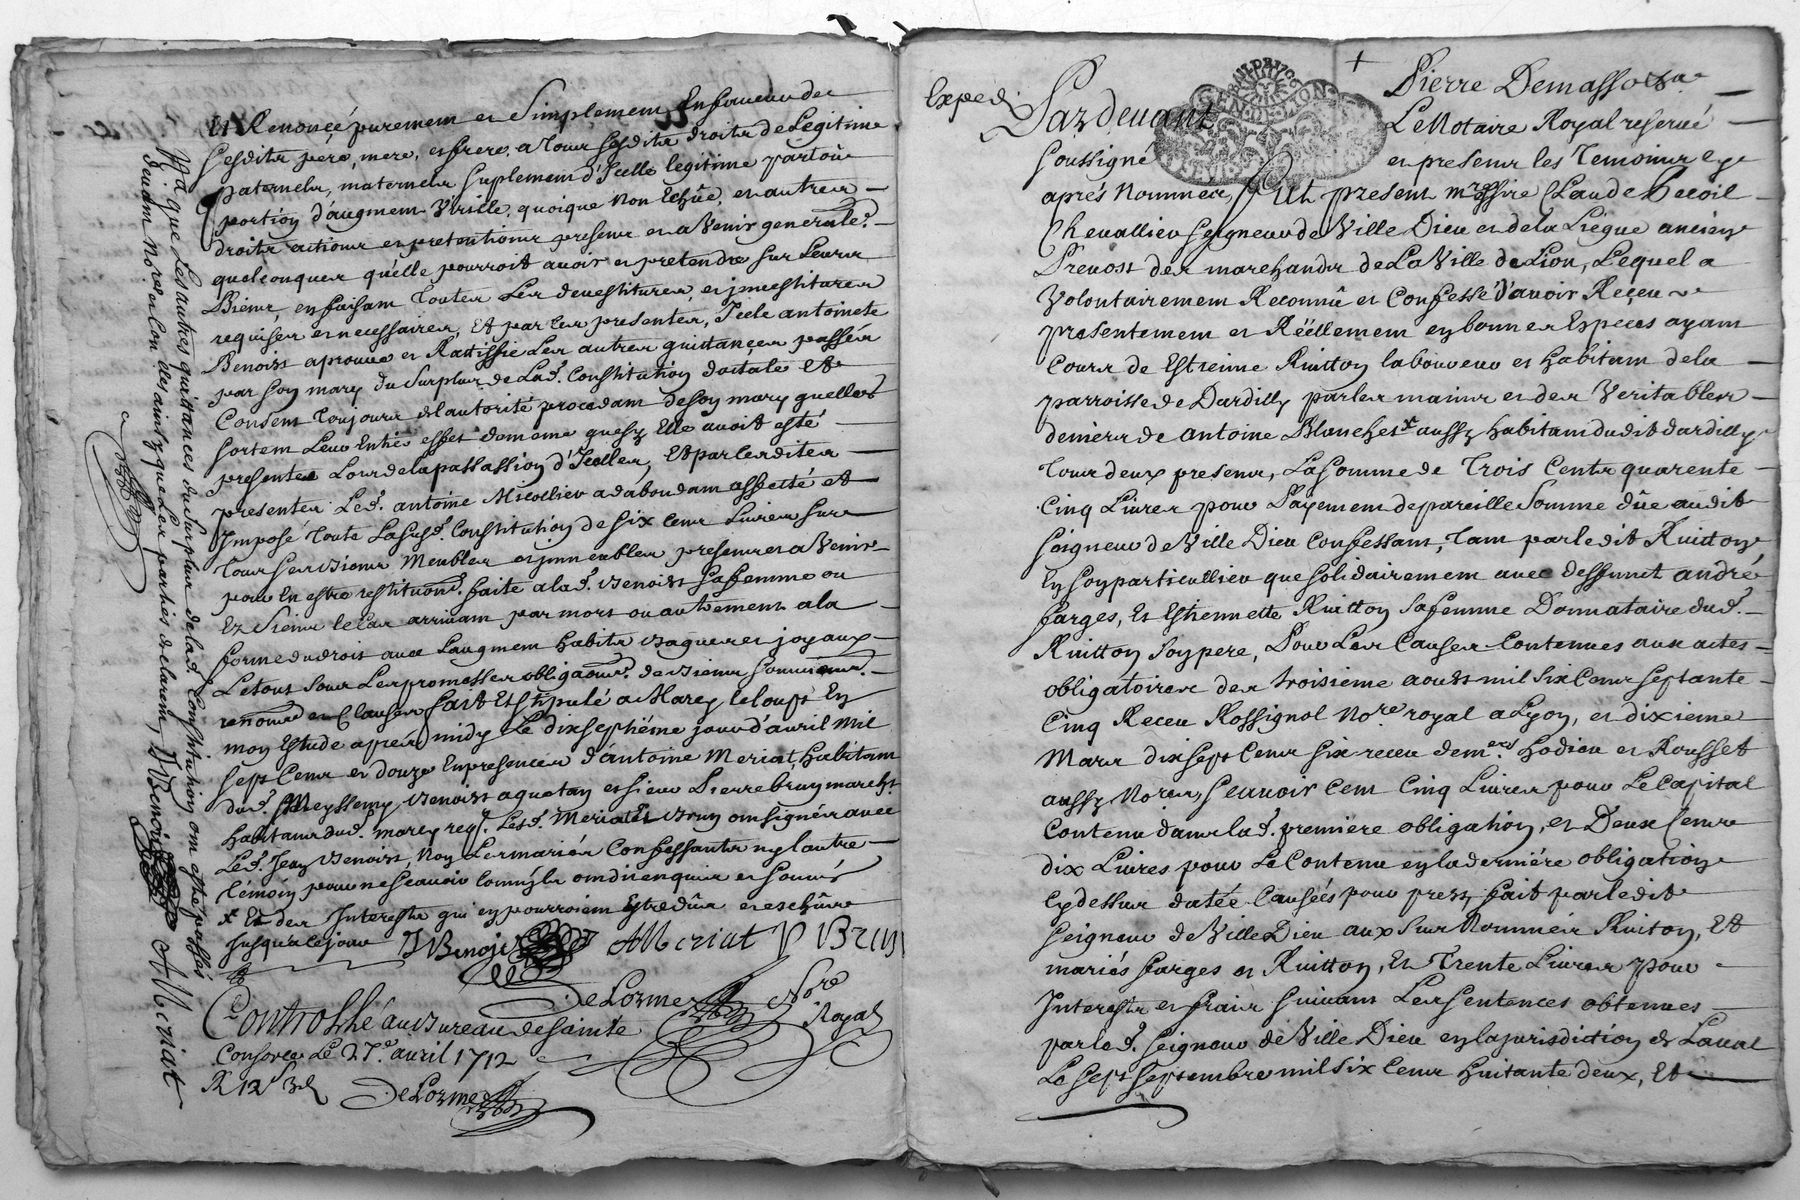 et Renoncé purement et Simplement En faveur de
sesdits père, mere, et frere, a tous sesdits droits de Legitime
paternels, maternels suplement d'Icelle legitime part ou
portion d'augment Virille, quoique Non Echûe, et autres
droits actions et pretentions presents et a Venir generale.t
quelconques qu'elle pourroit avoir et pretendre sur Leurs
Biens, en faisant toutes Les devestitures, et jnvestitures
requises et necessaires, Et par les presentes, Icele antoinete
Benoist aprouve et Rattiffie Les autres quittances passées
par son mary du Surplus de Lad. Constitution doctale Et
Consent toujours del autorité procedant de son mary quelles
sortent Leur Entier effet Comme quesy Elle avoit esté
presente Lors de la passassion d'Icelles, Et par lesdites
presentes Led. antoine Micollier ad'abondam affecté et
Imposé toute La susd. Constitution de six Cent Livres sur
tous ses Biens Meubles et jmmeubles presents et a Venir
pour En estre restituon. faite a lad. Benoist sa femme ou
Ez Siens le Cas arrivant par mort ou autrement a la
forme du droit avec L'augment habits bagues et joyaux
Letout sous Les promesses obligaons. de Biens
renoncé et Clauses fait Et Stipulé a Marcy le loup En
mon Estude aprés midy Le dix septiéme jour d'avril Mil
sept Cent et douze En presences d'antoine Meriat, habitant
dud. Benoist et sieur Pierre brun march.t
habitans dud. marcy req. Lesd. Meriat et Brun ont signés avec
Led. Jean Benoist, Non Les mariés Confessants ny l'autre
témoin pour ne scavoir Comm'jls ont dit enquis et sommés
x Et des Interests qui en pourroient Estre dûs et eschûs
jusqu'a ce jour J Benoist AMeriat P BRUN
DeLorme No.re
Royal
Controllé au Bureau de Sainte
Consorce Le 27.e avril 1712
R 12 s 3 d DeLorme
x a que Les autres quittances du surplus de lad. Constitution ont esté passés
devant No.re et Con ces ainsy que Les parties declarent, J Benoist AMeriat
Exped.
+
Pierre Demasso
Pardevant Le Notaire Royal reservé
soussigné et present les temoins cy
aprés nommez, fut present m.re Claude Becoil
Chevallier seigneur de Ville Dieu et de la Liegue ancien
Prevost des marchands de La Ville de Lion, Lequel a
Volontairement Reconnû et Confessé d'avoir Receu
presentement et Réellement en bonnes Especes ayant
Cours de Estienne Ruitton laboureur et habitant de la
parroisse de Dardilly par les mains et des Veritables
deniers de antoine Blanchet aussy habitant dudit dardilly
tous deux presents, La somme de trois Cents quarente
Cinq Livres pour Payement de pareille somme dûe audit
seigneur de Ville Dieu Confessant, tant par ledit Ruitton
En son particullier que solidairement avec deffunct andré
farges, Et Estiennette Ruitton sa femme Donnataire dud.
Ruitton son pere, Pour Les Causes Contenues aux actes
obligatoires des troisieme aoust mil six Cent septante
Cinq Receu Rossignol No.re royal a Lyon, et dixieme
Mars dix sept Cent six receu de m.es hodieu et Rousset
aussy No.res, scavoir Cent Cinq Livres pour Le Capital
Contenu dans lad. première obligation, et Deux Cents
dix Livres pour Le Contenu en la derniére obligation
cy dessus datée Causées pour prest fait par ledit
seigneur de Ville Dieu aux sus Nommés Ruiton, Et
mariés farges et Ruitton, Et Trente Livres pour
Interests et frais suivant Les sentences obtenues
par led. seigneur de Ville Dieu en la jurisdiction de Laval
Le sept septembre mil six Cent huitante deux, Et